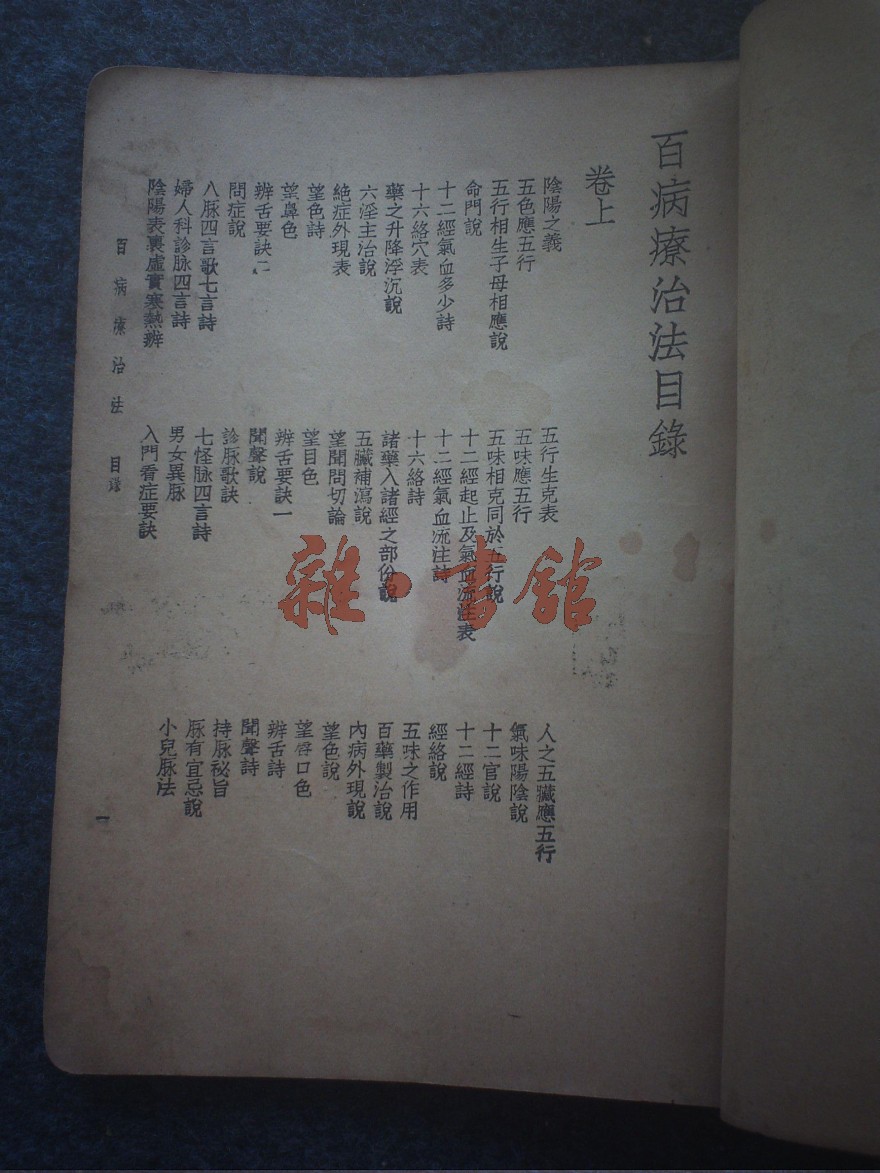 百病療治法目錄
卷上
陰陽之義
五行生克表
人之五臟應五行
五色應五行
五味應五行
氣味陽陰說
五行相生子母相應說
五味相克同於五行說
十二官說
命門說
十二經起止及氣血流注表
十二經詩
十二經氣血多少詩
十二經氣血流注詩
經絡說
十六絡穴表
十六絡詩
五味之作用
藥之升降浮沉說
諸藥入諸經之部份說
百藥製治說
六淫主治說
五臟補瀉說
內病外現說
絕症外現表
望聞問切論
望色說
望色詩
望目色
望唇口色
望鼻色
辨舌要訣一
辨舌詩
辨舌要訣二
聞聲說
聞聲詩
問症說
診脉歌訣
持脉祕旨
八脉四言歌七言詩
七怪脉四言詩
脈有宜忌說
婦人科診脉四言詩
男女異脉
小兒脉法
陰陽表裏虛實寒熱辨
入門看症要訣
百病療治法 目錄
一
雜·書館